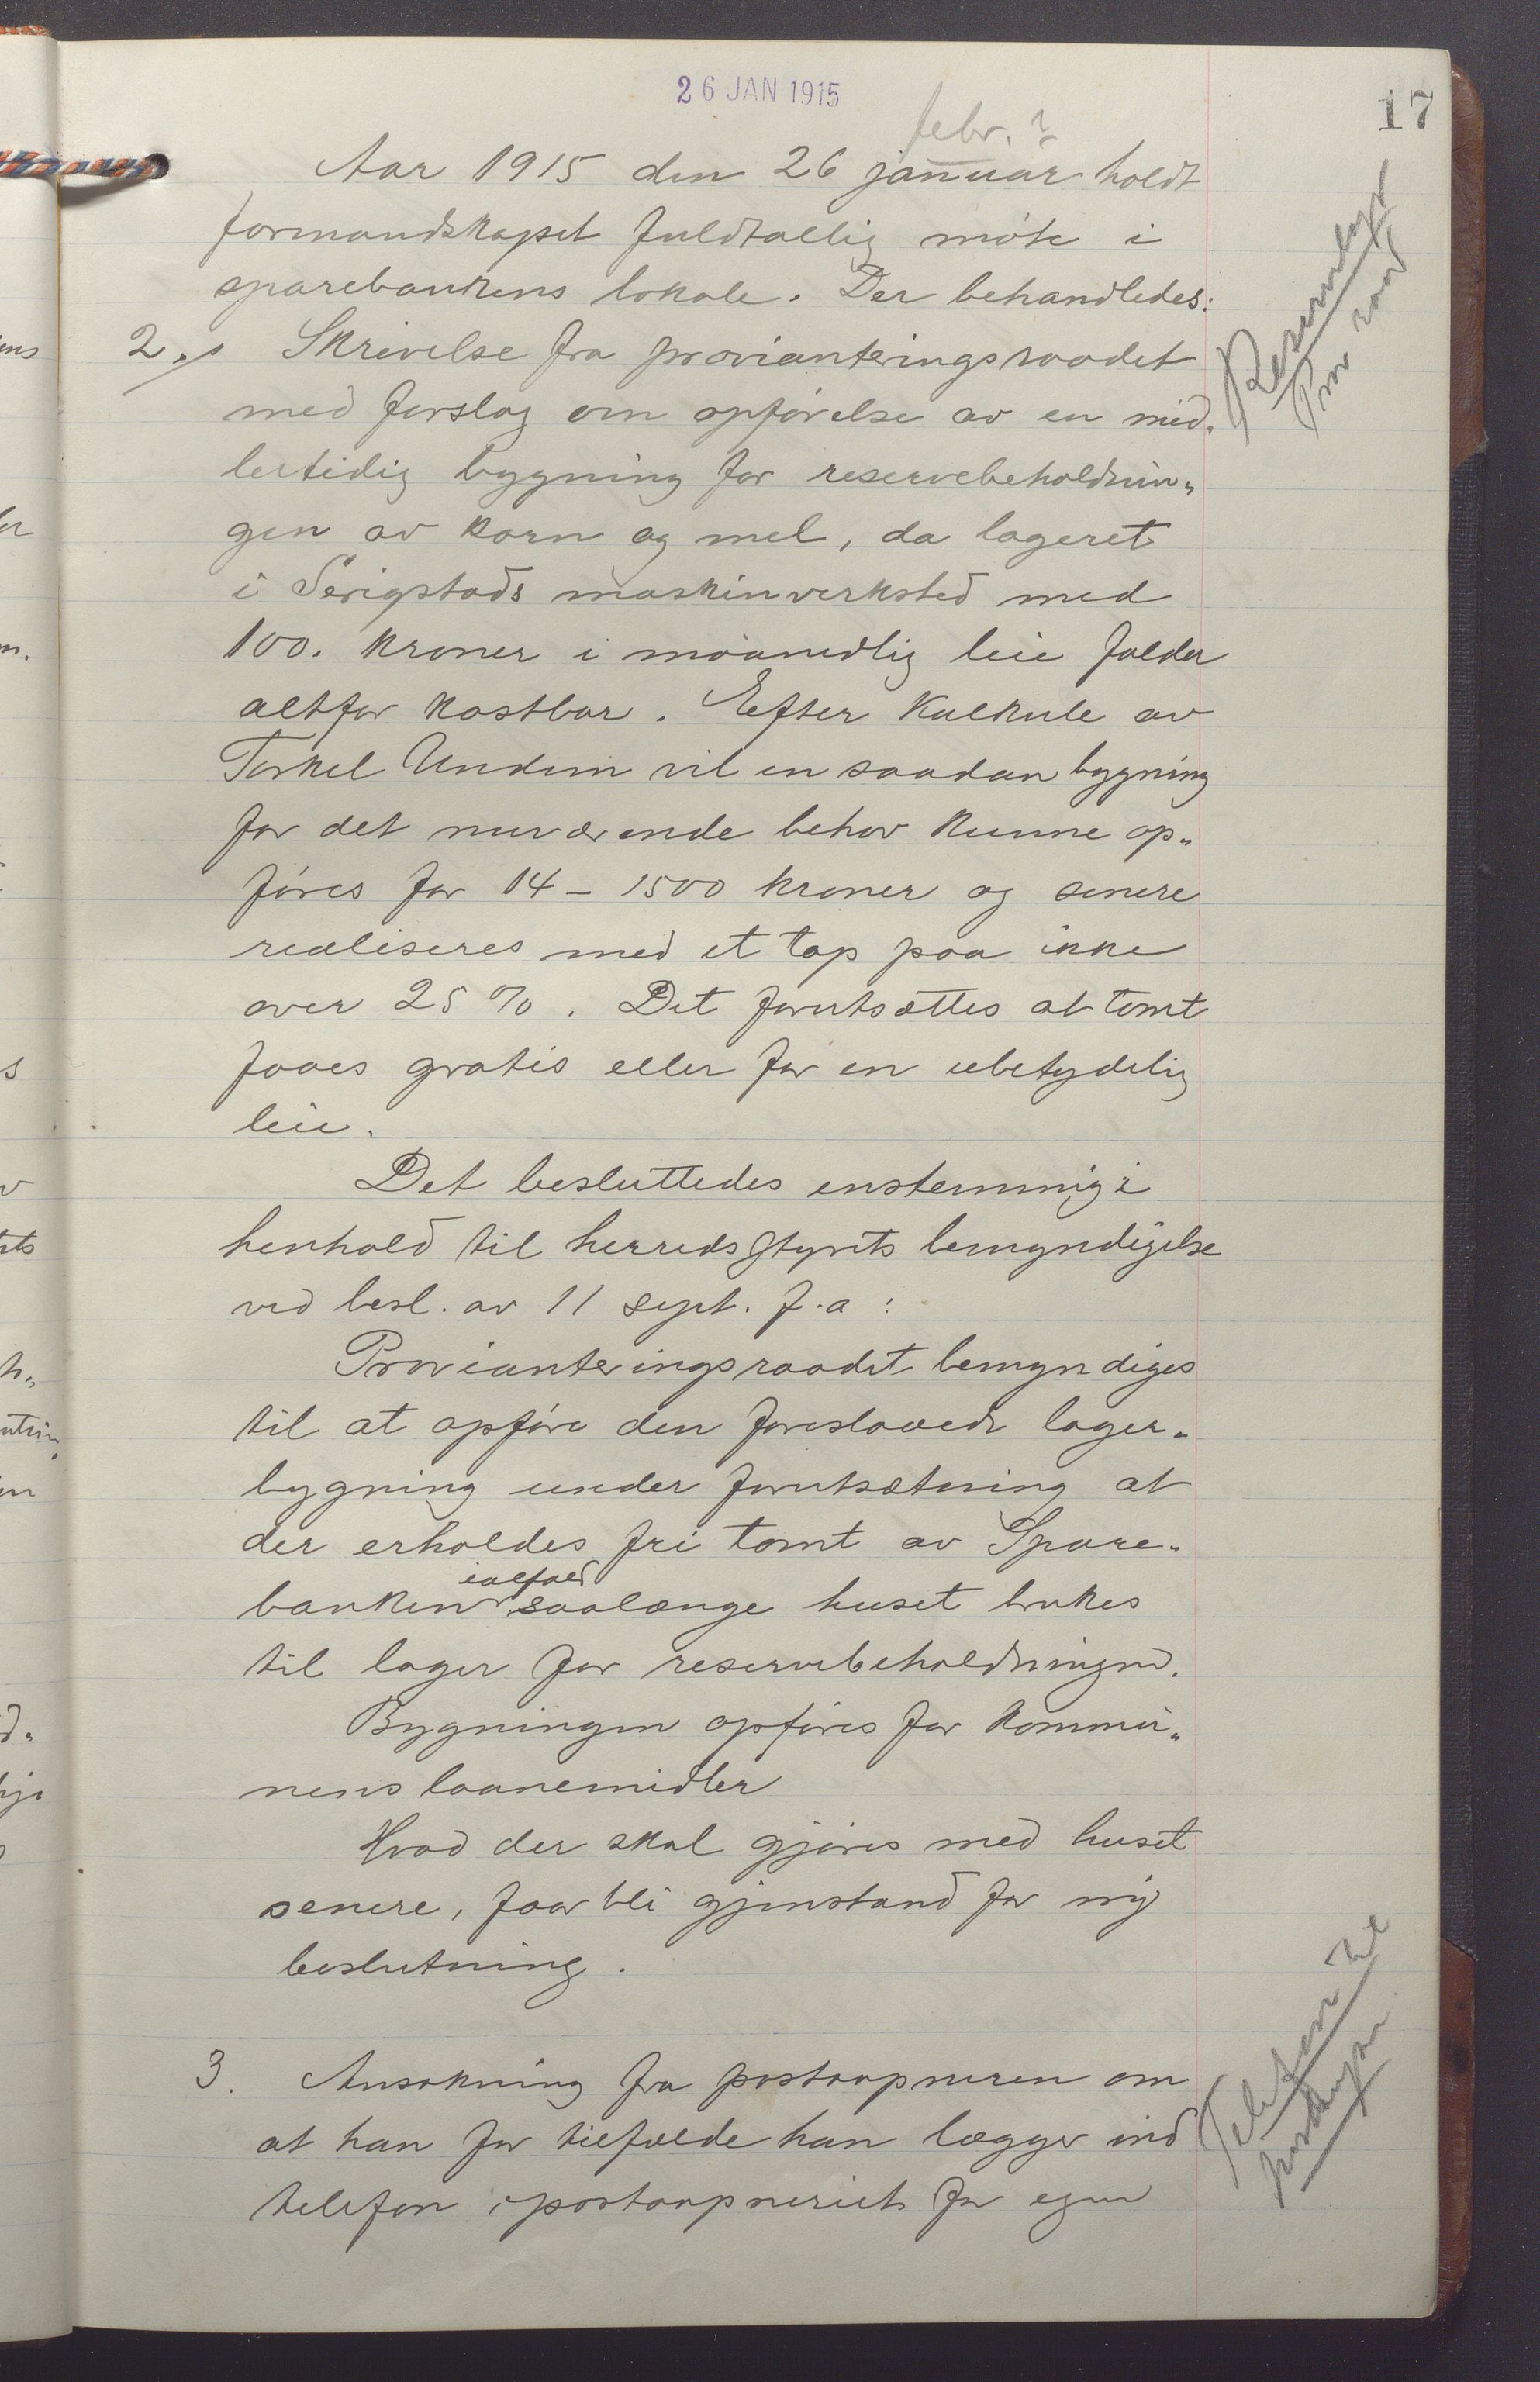 26 JAN 1915
17
febr. ?
Aar 1915 den 26 januar holdt
formandskapet fuldtallig møte i
sparebankens lokale. Der behandledes:
2. Skrivelse fra provianteringsraadet
med forslag om opførelse av en mid„
lertidig bygning for reservebeholdnin„
gen av korn og mel, da lageret
i Serigstads maskinverksted med
100. kroner i maanedlig leie falder
altfor kostbar. Efter kalkule av
Torkel Undeim vil en saadan bygning
for det nuværende behov kunne op„
føres for 14 – 1500 kroner og senere
realiseres med et tap paa ikke
over 25 %. Det forutsættes at tomt
faaes gratis eller for en ubetydelig
leie.
Det besluttedes enstemmig i
henhold til herredsstyrets bemyndigelse
ved besl. av 11 sept. f.a :
Provianteringsraadet bemyndiges
til at opføre den foreslaaede lager„
bygning under forutsætning at
der erholdes fri tomt av Spare„
banken ialfald saalænge huset brukes
til lager for reservebeholdningen.
Bygningen opføres for kommu„
nens laanemidler
Hvad der skal gjøres med huset
senere, faar bli gjenstand for ny
beslutning.
3. Ansøkning fra postaapneren om
at han for tilfælde han lægger ind
telefon i postaapneriet for egen
Prov raad
Telefon til